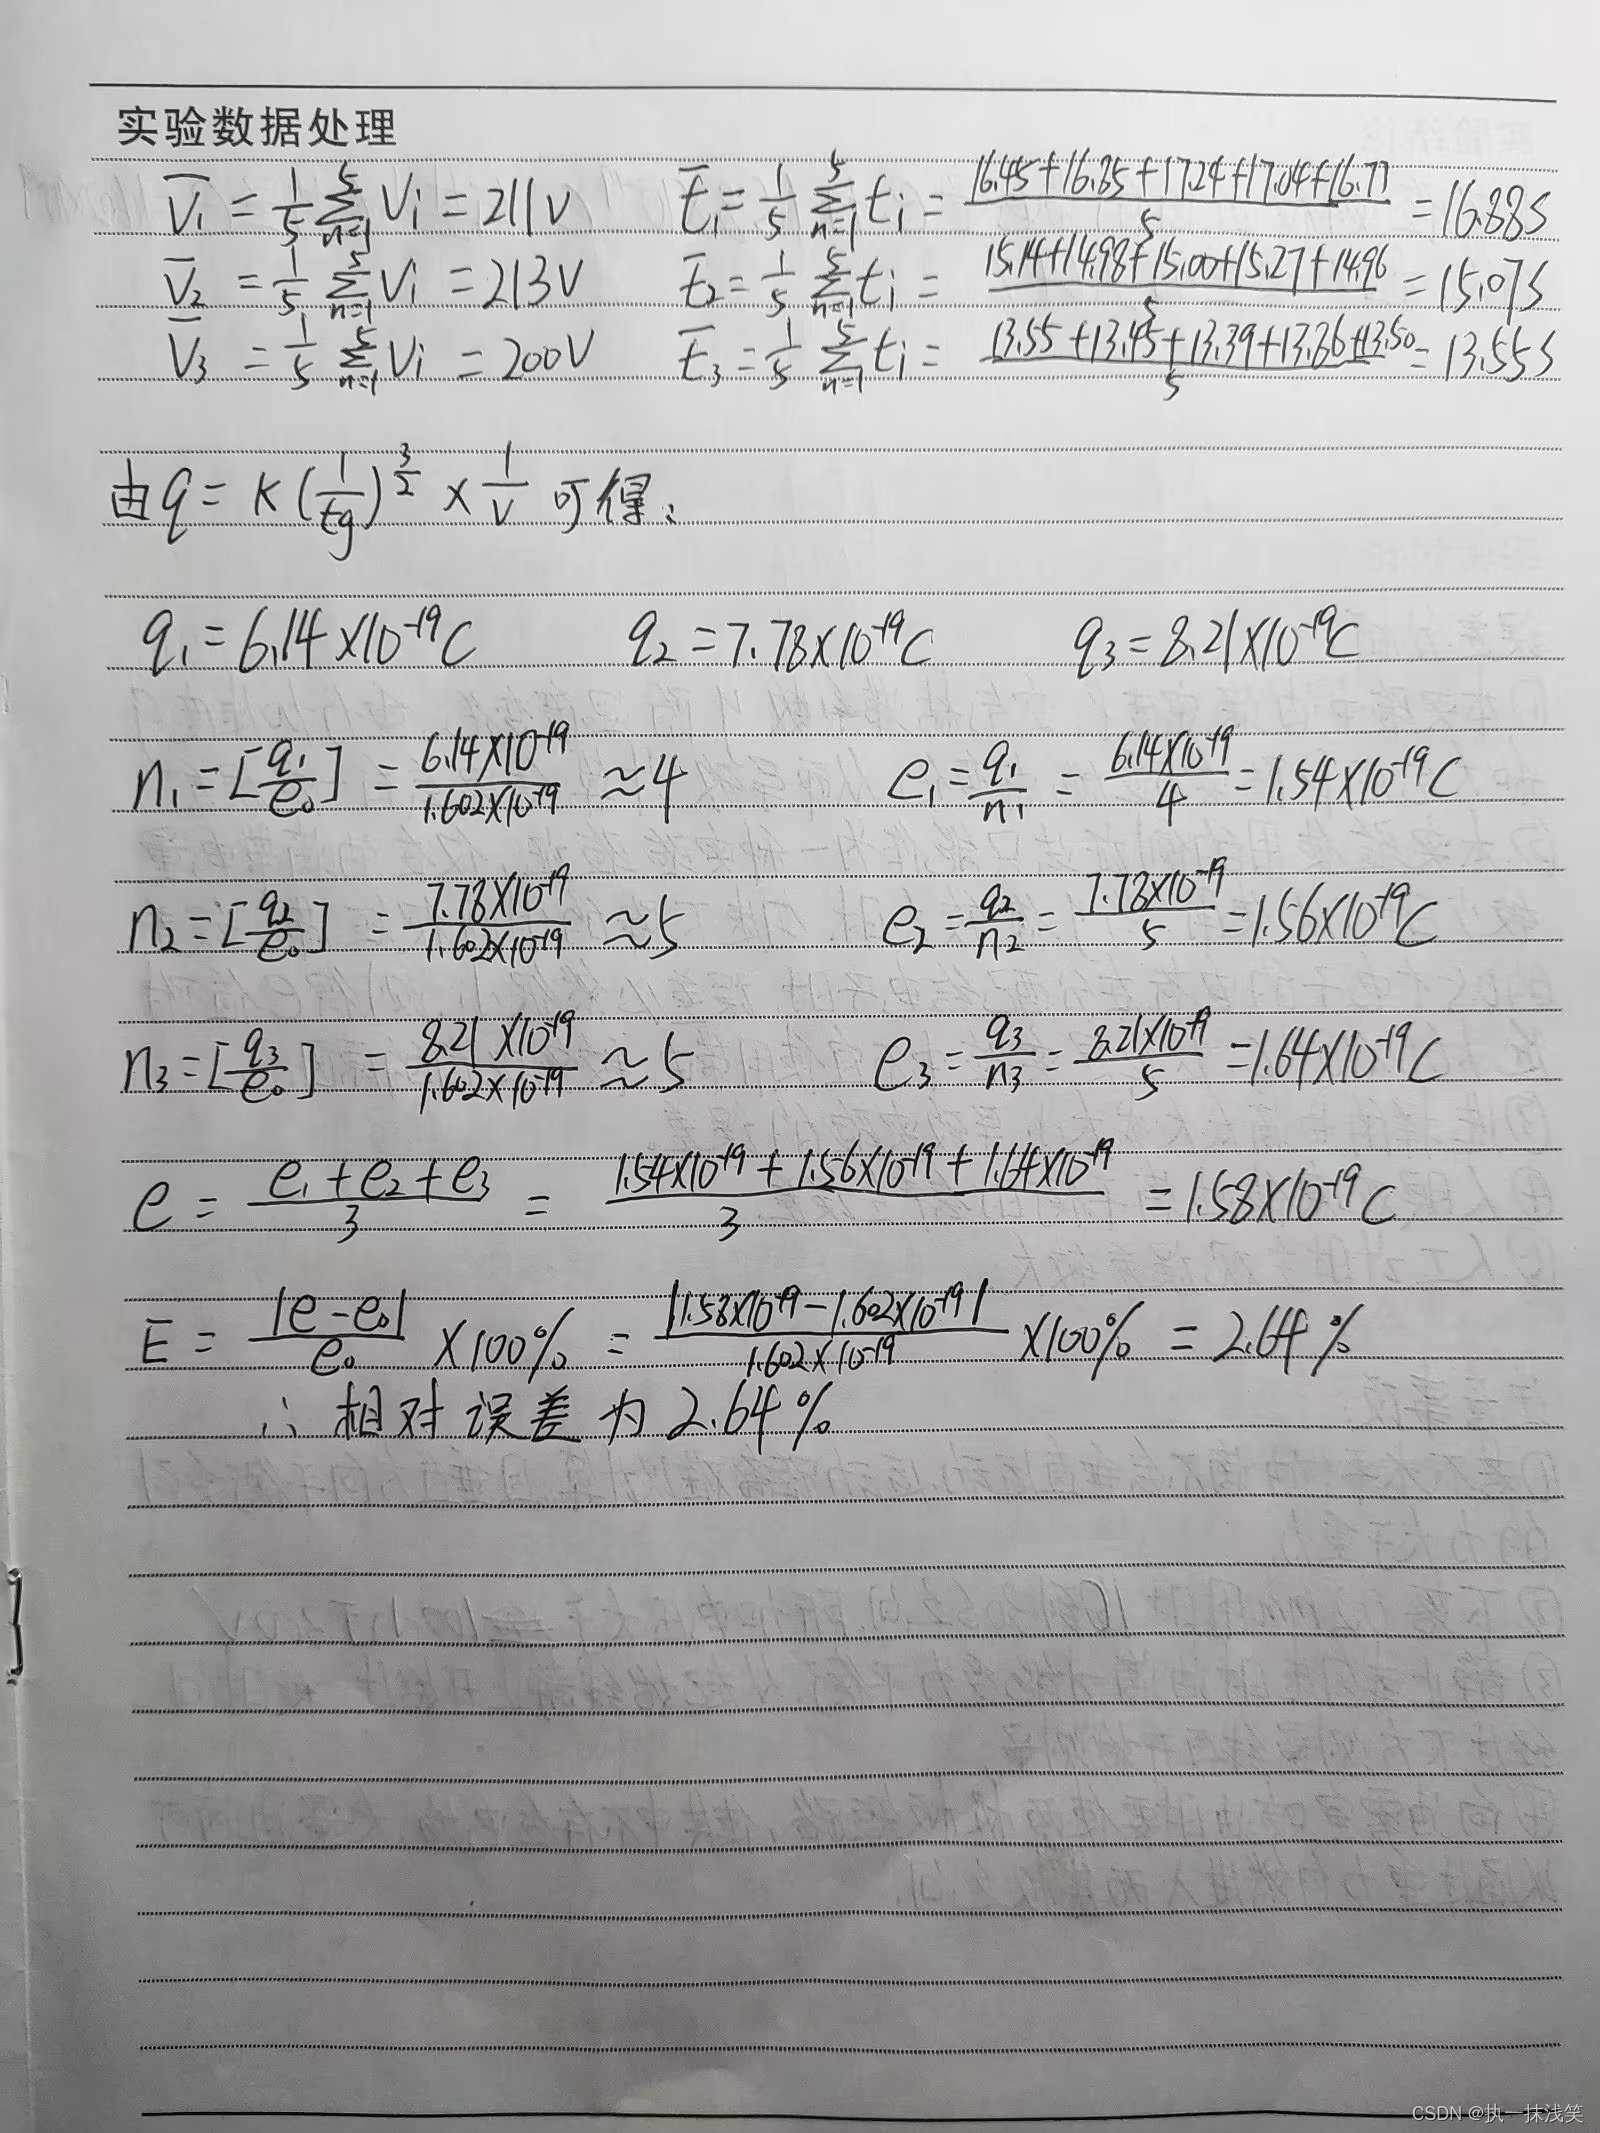 实验数据处理
V̅₁ = 1/5 ∑ₙ₌₁⁵ Vi = 211V  t̅₁ = 1/5 ∑ₙ₌₁⁵ ti = (16.45+16.85+17.24+17.04+16.77)/5 = 16.88S
V̅₂ = 1/5 ∑ₙ₌₁⁵ Vi = 213V  t̅₂ = 1/5 ∑ₙ₌₁⁵ ti = (15.14+14.98+15.00+15.27+14.96)/5 = 15.07S
V̅₃ = 1/5 ∑ₙ₌₁⁵ Vi = 200V  t̅₃ = 1/5 ∑ₙ₌₁⁵ ti = (13.55+13.45+13.39+13.86+13.50)/5 = 13.55S
由q = K(1/tg)^(3/2) × 1/V 可得:
q₁ = 6.14×10⁻¹⁹C  q₂ = 7.78×10⁻¹⁹C  q₃ = 8.21×10⁻¹⁹C
n₁ = [q₁/e₀] = 6.14×10⁻¹⁹/1.602×10⁻¹⁹ ≈ 4  e₁ = q₁/n₁ = 6.14×10⁻¹⁹/4 = 1.54×10⁻¹⁹C
n₂ = [q₂/e₀] = 7.78×10⁻¹⁹/1.602×10⁻¹⁹ ≈ 5  e₂ = q₂/n₂ = 7.78×10⁻¹⁹/5 = 1.56×10⁻¹⁹C
n₃ = [q₃/e₀] = 8.21×10⁻¹⁹/1.602×10⁻¹⁹ ≈ 5  e₃ = q₃/n₃ = 8.21×10⁻¹⁹/5 = 1.64×10⁻¹⁹C
e = (e₁+e₂+e₃)/3 = (1.54×10⁻¹⁹+1.56×10⁻¹⁹+1.64×10⁻¹⁹)/3 = 1.58×10⁻¹⁹C
E = |e-e₀|/e₀ ×100% = |1.58×10⁻¹⁹-1.602×10⁻¹⁹|/1.602×10⁻¹⁹ ×100% = 2.64%
∴ 相对误差为2.64%
CSDN @执一抹浅笑